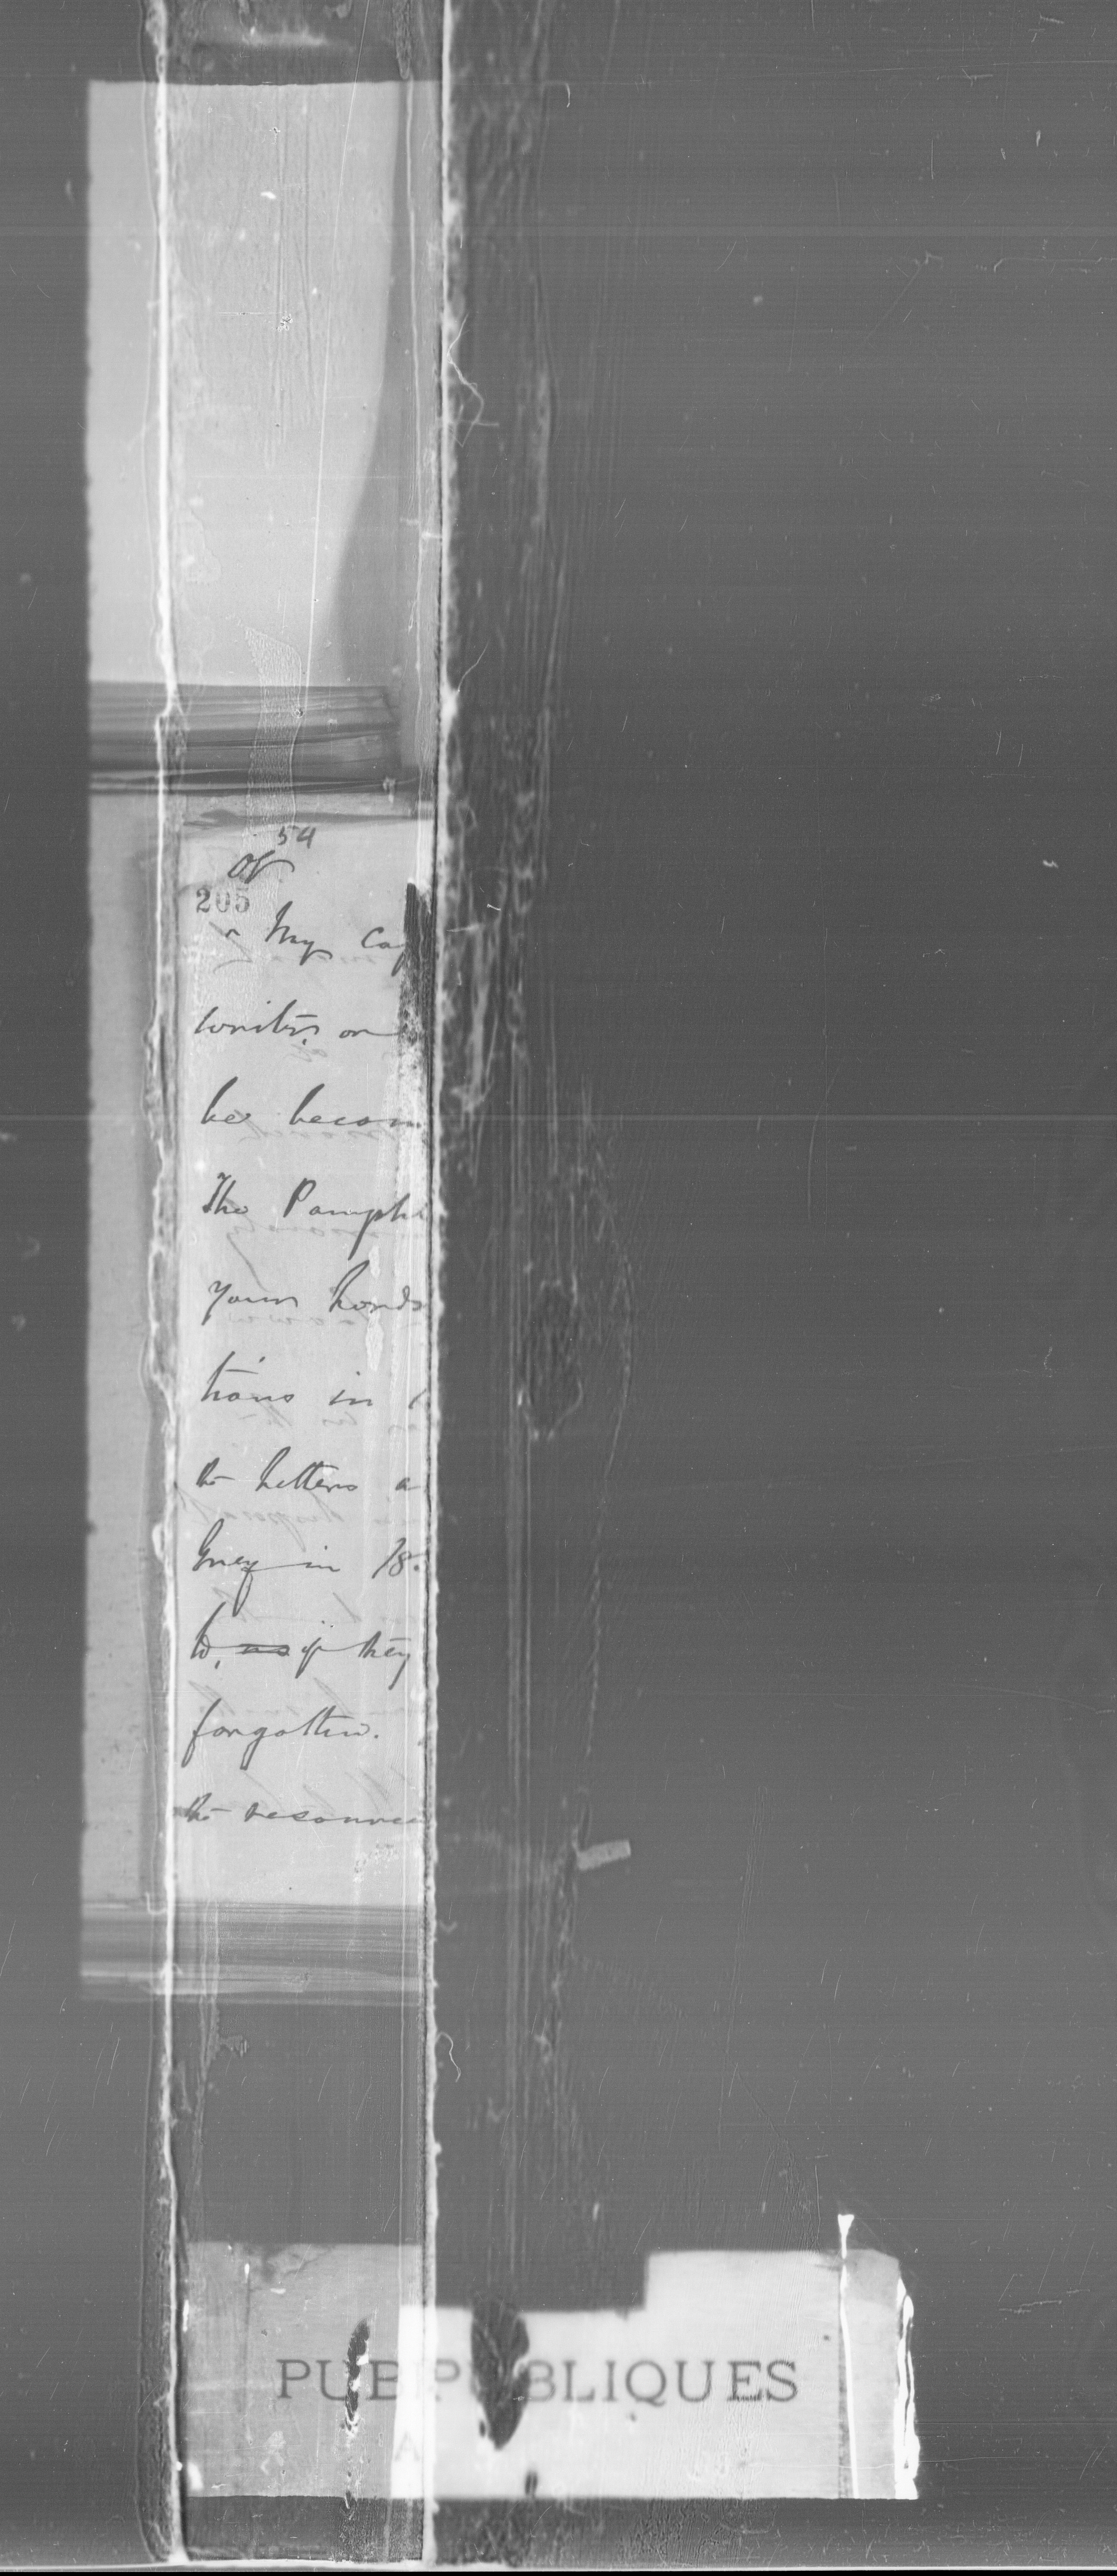 54
Of
205
My Cap
writer on
her becom
The Pamph
your hands
tions in
the Letters a
Grey in 18
to, as if they
forgotten.
the resource
PUB PUBLIQUES